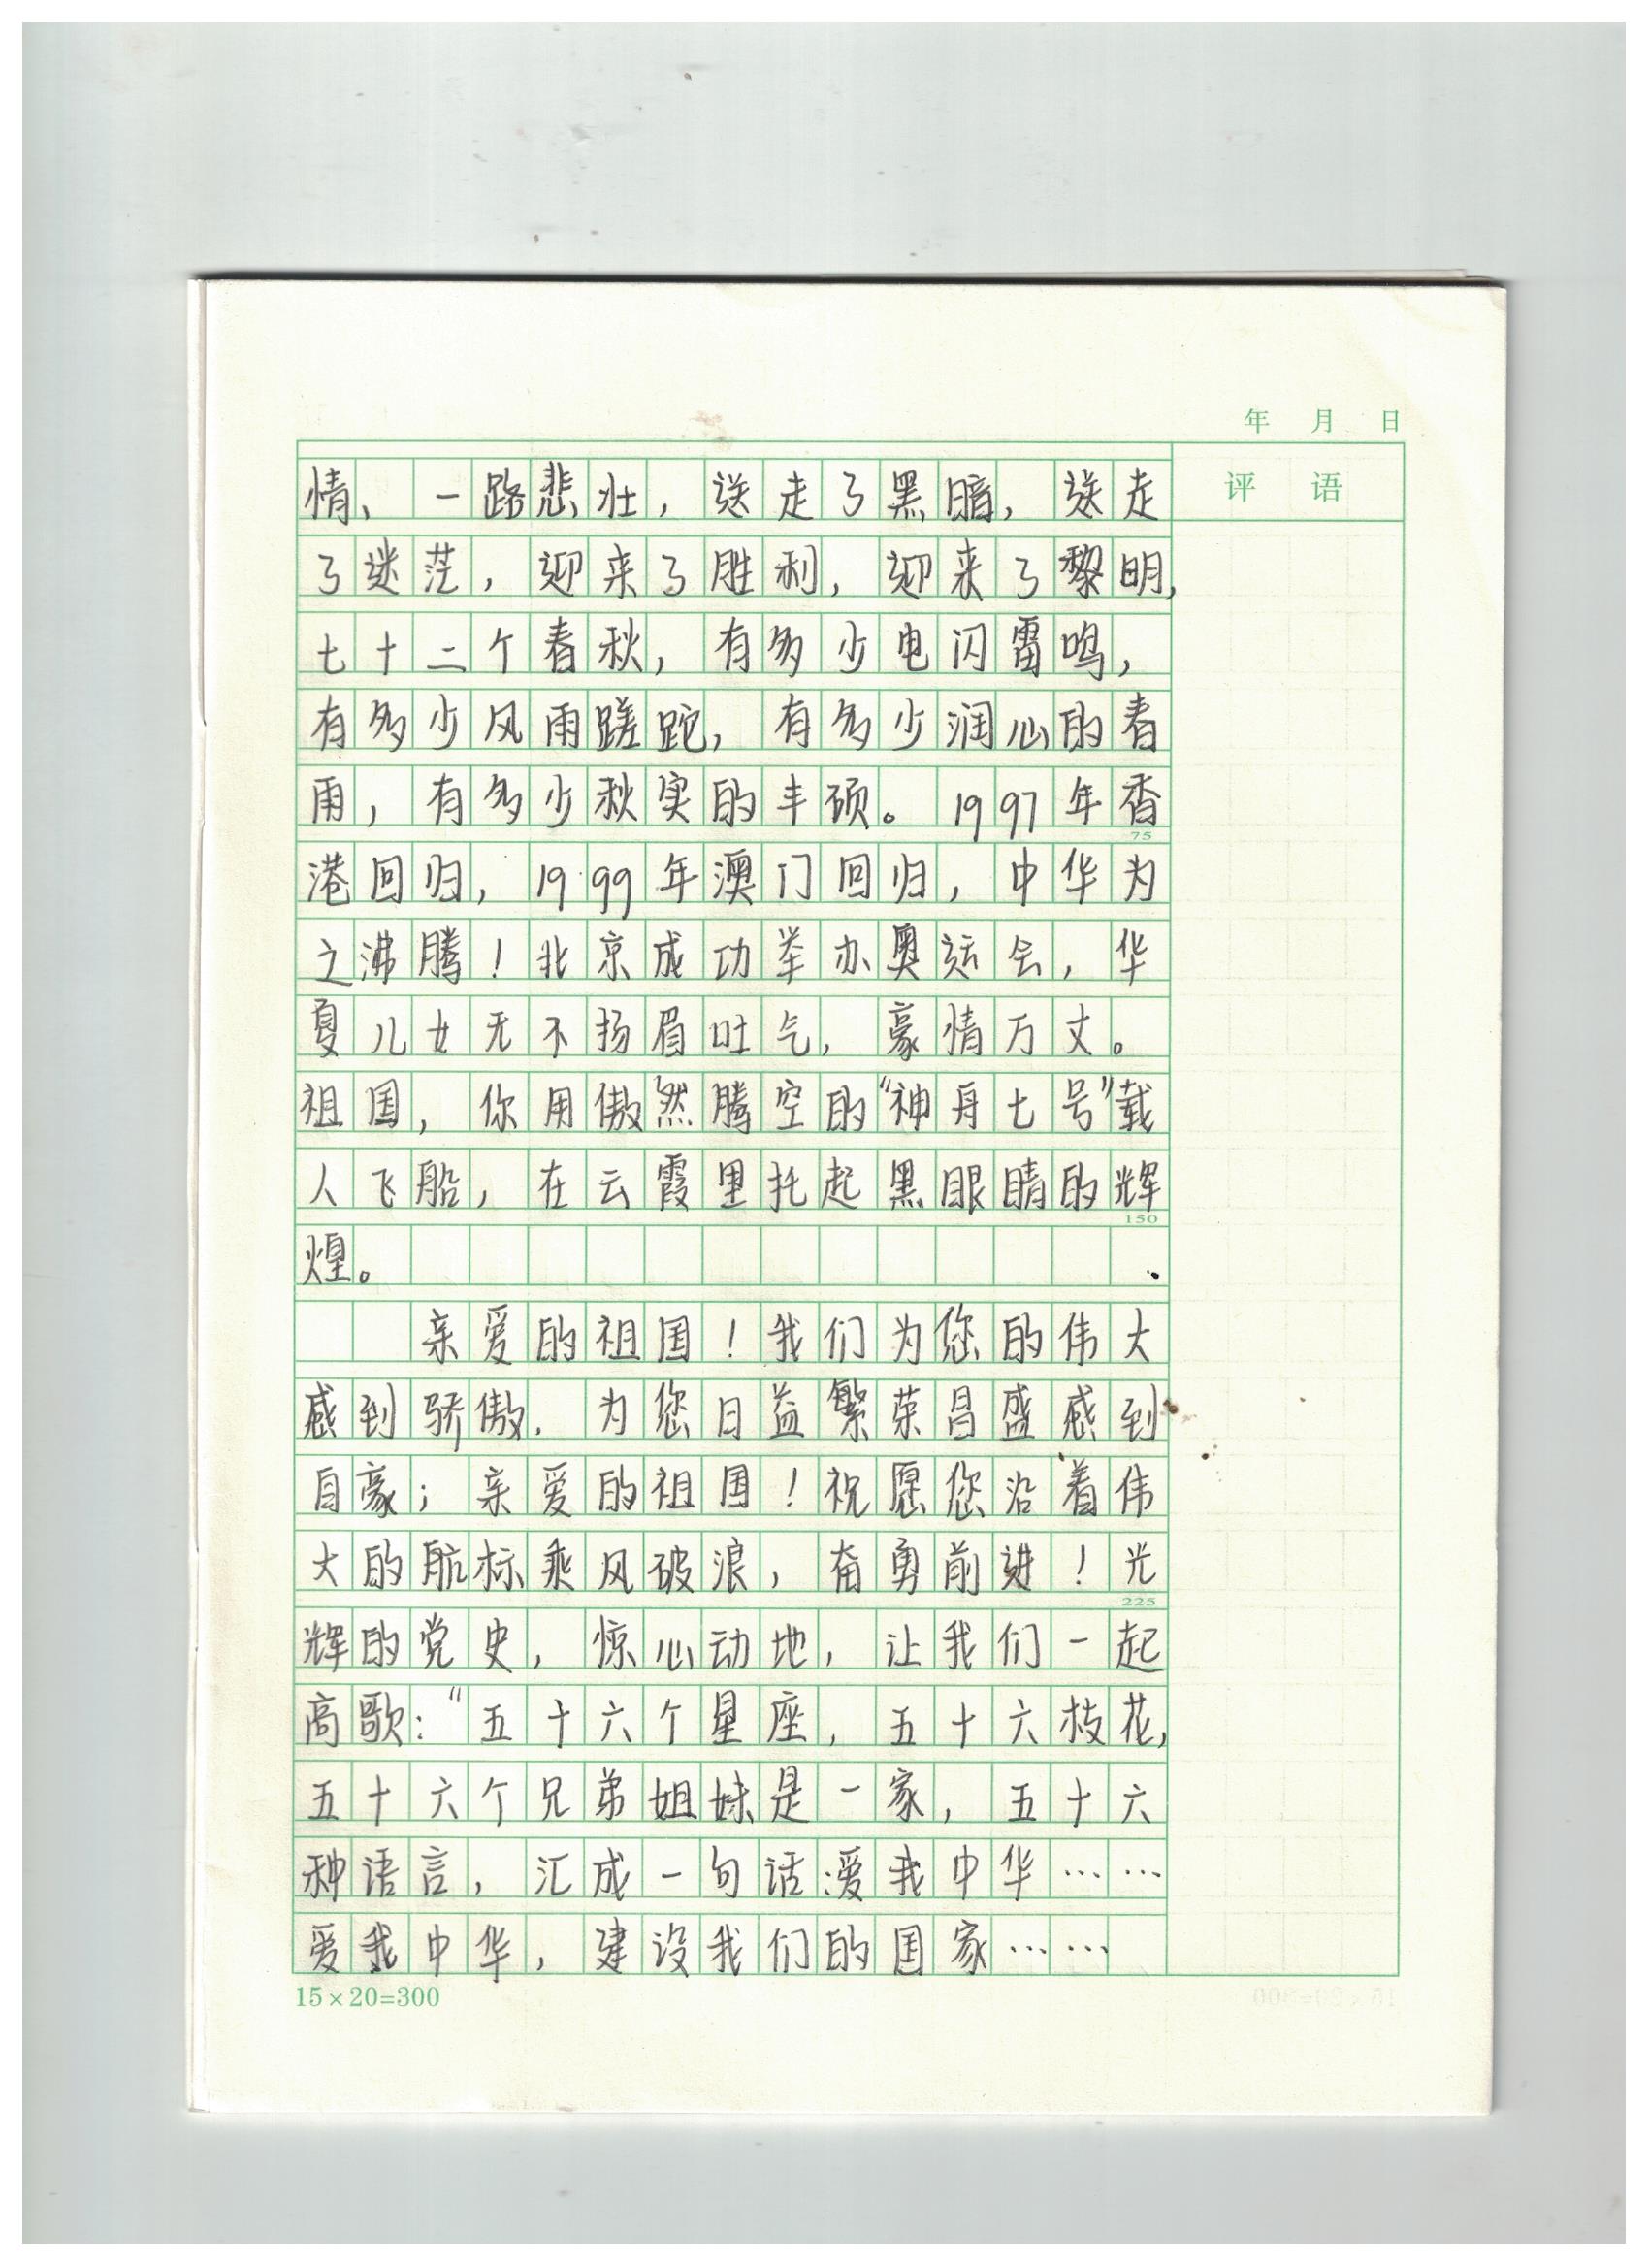 年 月 日
评 语
情、一路悲壮，送走了黑暗，送走
了迷茫，迎来了胜利，迎来了黎明，
七十二个春秋，有多少电闪雷鸣，
有多少风雨蹉跎，有多少润心的春
雨，有多少秋实的丰硕。1997年香
75
港回归，1999年澳门回归，中华为
之沸腾！北京成功举办奥运会，华
夏儿女无不扬眉吐气，豪情万丈。
祖国，你用傲然腾空的“神舟七号”载
人飞船，在云霞里托起黑眼睛的辉
150
煌。
亲爱的祖国！我们为您的伟大
感到骄傲．为您日益繁荣昌盛感到
自豪；亲爱的祖国！祝愿您沿着伟
大的航标乘风破浪，奋勇前进！光
225
辉的党史，惊心动地，让我们一起
高歌：“五十六个星座，五十六枝花，
五十六个兄弟姐妹是一家，五十六
种语言，汇成一句话:爱我中华……
爱我中华，建设我们的国家……
15×20=300